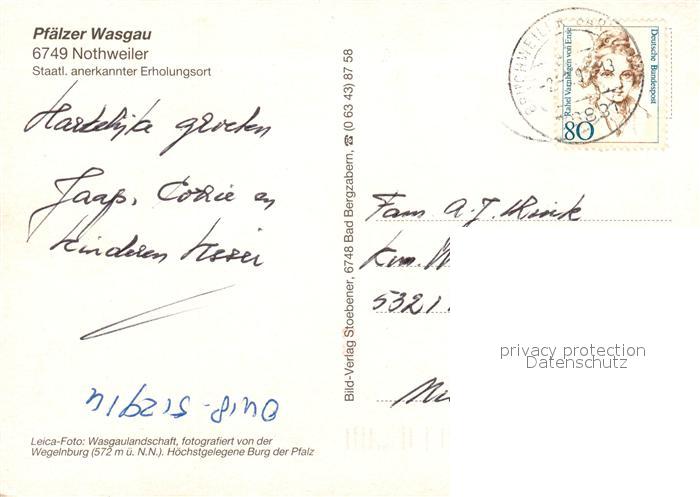 Pfälzer Wasgau
6749 Nothweiler
Staatl. anerkannter Erholungsort
Hartelijke groeten
Jaap, Corrie en
kinderen
Leica-Foto: Wasgaulandschaft, fotografiert von der
Wegelnburg (572 m ü. N.N.). Höchstgelegene Burg der Pfalz
Bild-Verlag Stoebener, 6748 Bad Bergzabern, ☎ (0 63 43) 87 58
Rahel Varnhagen von Ense
Deutsche Bundespost
80
Fam A.J.
5321
privacy protection
Datenschutz